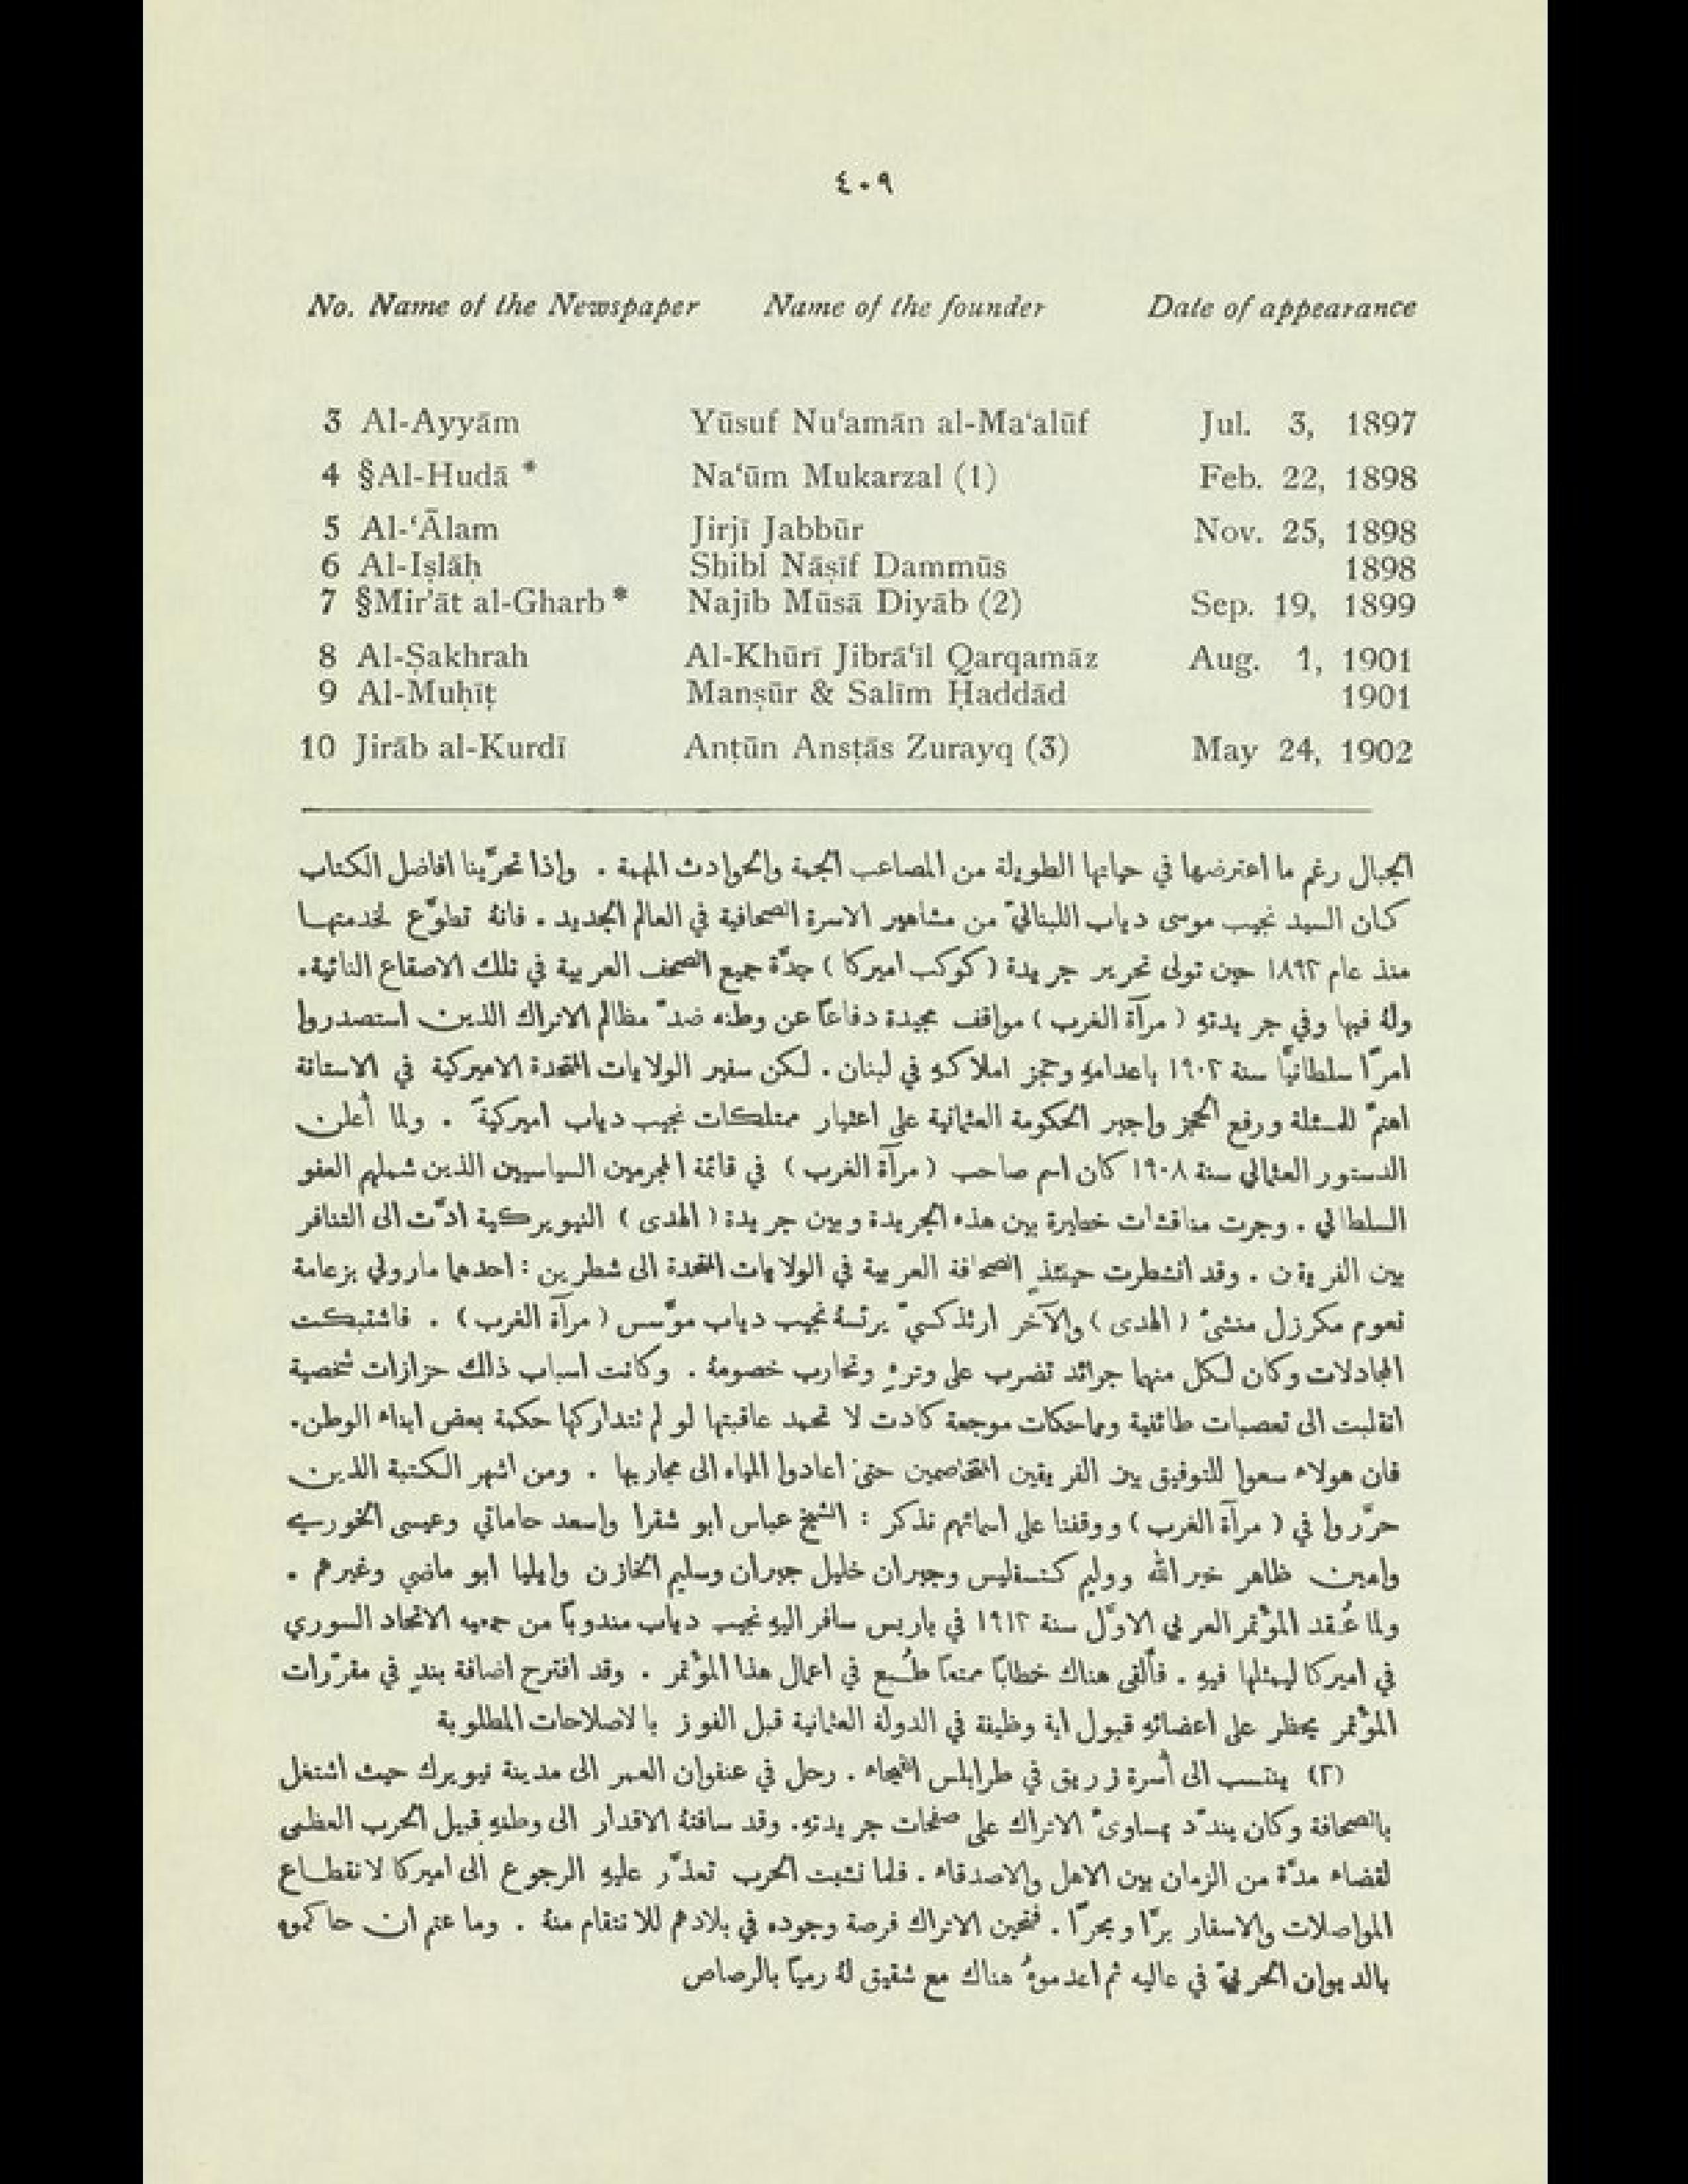 ٤٠٩
No. Name of the Newspaper Name of the founder Date of appearance
3 Al-Ayyām Yūsuf Nu‘amān al-Ma‘alūf Jul. 3, 1897
4 §Al-Hudā * Na‘ūm Mukarzal (1) Feb. 22, 1898
5 Al-‘Ālam Jirjī Jabbūr Nov. 25, 1898
6 Al-Iṣlāḥ Shibl Nāṣīf Dammūs 1898
7 §Mir’āt al-Gharb * Najīb Mūsā Diyāb (2) Sep. 19, 1899
8 Al-Ṣakhrah Al-Khūrī Jibrā‘īl Qarqamāz Aug. 1, 1901
9 Al-Muḥīṭ Manṣūr & Salīm Ḥaddād 1901
10 Jirāb al-Kurdī Anṭūn Ansṭās Zurayq (3) May 24, 1902
الجبال رغم ما اعترضها في حياتها الطويلة من المصاعب الجمة والحوادث المهمة . واذا تحرَّينا افاضل الكتاب
كان السيد نجيب موسى دياب اللبنانيّ من مشاهير الاسرة الصحافية في العالم الجديد . فانهُ تطوَّع لخدمتهـا
منذ عام ١٨٩٢ حين تولى تحرير جريدة ( كوكب اميركا ) جدَّة جميع الصحف العربية في تلك الاصقاع النائية .
ولهُ فيها وفي جريدتهِ ( مرآة الغرب ) مواقف مجيدة دفاعًا عن وطنه ضدّ مظالم الاتراك الذين استصدروا
امرًا سلطانيًّا سنة ١٩٠٢ باعدامهِ وحجز املاكهِ في لبنان . لكن سفير الولايات المتحدة الاميركية في الاستانة
اهتمّ للمسئلة ورفع الحجز واجبر الحكومة العثمانية على اعتبار ممتلكات نجيب دياب اميركيةً . ولما أُعلن
الدستور العثماني سنة ١٩٠٨ كان اسم صاحب ( مرآة الغرب ) في قائمة المجرمين السياسيين الذين شملهم العفو
السلطاني . وجرت مناقشات خطيرة بين هذه الجريدة وبين جريدة ( الهدى ) النيويركية ادَّت الى التنافر
بين الفريقين . وقد انشطرت حينئذٍ الصحافة العربية في الولايات المتحدة الى شطرين : احدهما ماروني بزعامة
نعوم مكرزل منشئ ( الهدى ) والآخر ارثذكسيّ برئسهُ نجيب دياب موَّسس ( مرآة الغرب ) . فاشتبكت
المجادلات وكان لكل منهما جرائد تضرب على وترهِ وتحارب خصومهُ . وكانت اسباب ذلك حزازات شخصية
انقلبت الى تعصبات طائفية ومماحكات موجعة كادت لا تحمد عاقبتها لو لم تتداركها حكمة بعض ابناء الوطن .
فان هولاء سعوا للتوفيق بين الفريقين المتخاصمين حتى اعادوا المياه الى مجاريها . ومن اشهر الكتبة الذين
حرَّروا في ( مرآة الغرب ) ووقفنا على اسمائهم نذكر : الشيخ عباس ابو شقرا واسعد حاماتي وعيسى الخوري
وامين ظاهر خيرالله ووليم كتسفليس وجبران خليل جبران وسليم الخازن وايليا ابو ماضي وغيرهم .
ولما عُقد المؤتمر العربي الاوَّل سنة ١٩١٢ في باريس سافر اليهِ نجيب دياب مندوبًا من جمعيه الاتحاد السوري
في اميركا ليمثلها فيهِ . فألقى هناك خطابًا ممتعًا طُبع في اعمال هذا المؤتمر . وقد اقترح اضافة بندٍ في مقرَّرات
المؤتمر يحظر على اعضائهِ قبول اية وظيفة في الدولة العثمانية قبل الفوز بالاصلاحات المطلوبة
(٢) ينتسب الى أسرة زريق في طرابلس الفيحاء . رحل في عنفوان العمر الى مدينة نيويرك حيث اشتغل
بالصحافة وكان يندّد بمساوئ الاتراك على صفحات جريدتهِ . وقد ساقتهُ الاقدار الى وطنهِ قبيل الحرب العظمى
لقضاء مدَّة من الزمان بين الاهل والاصدقاء . فلما نشبت الحرب تعذَّر عليهِ الرجوع الى اميركا لانقطـاع
المواصلات والاسفار برًّا وبحرًا . فتحين الاتراك فرصة وجوده في بلادهم للانتقام منهُ . وما عتم ان حاكموه
بالديوان الحربيّ في عاليه ثم اعدموهُ هناك مع شقيق لهُ رميًا بالرصاص